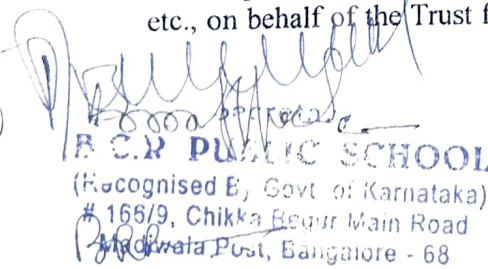 etc., on behalf of the Trust f
B.C.R PUBLIC SCHOOL
(Recognised By Govt of Karnataka)
# 166/9, Chikka Begur Main Road
Madiwala Post, Bangalore - 68